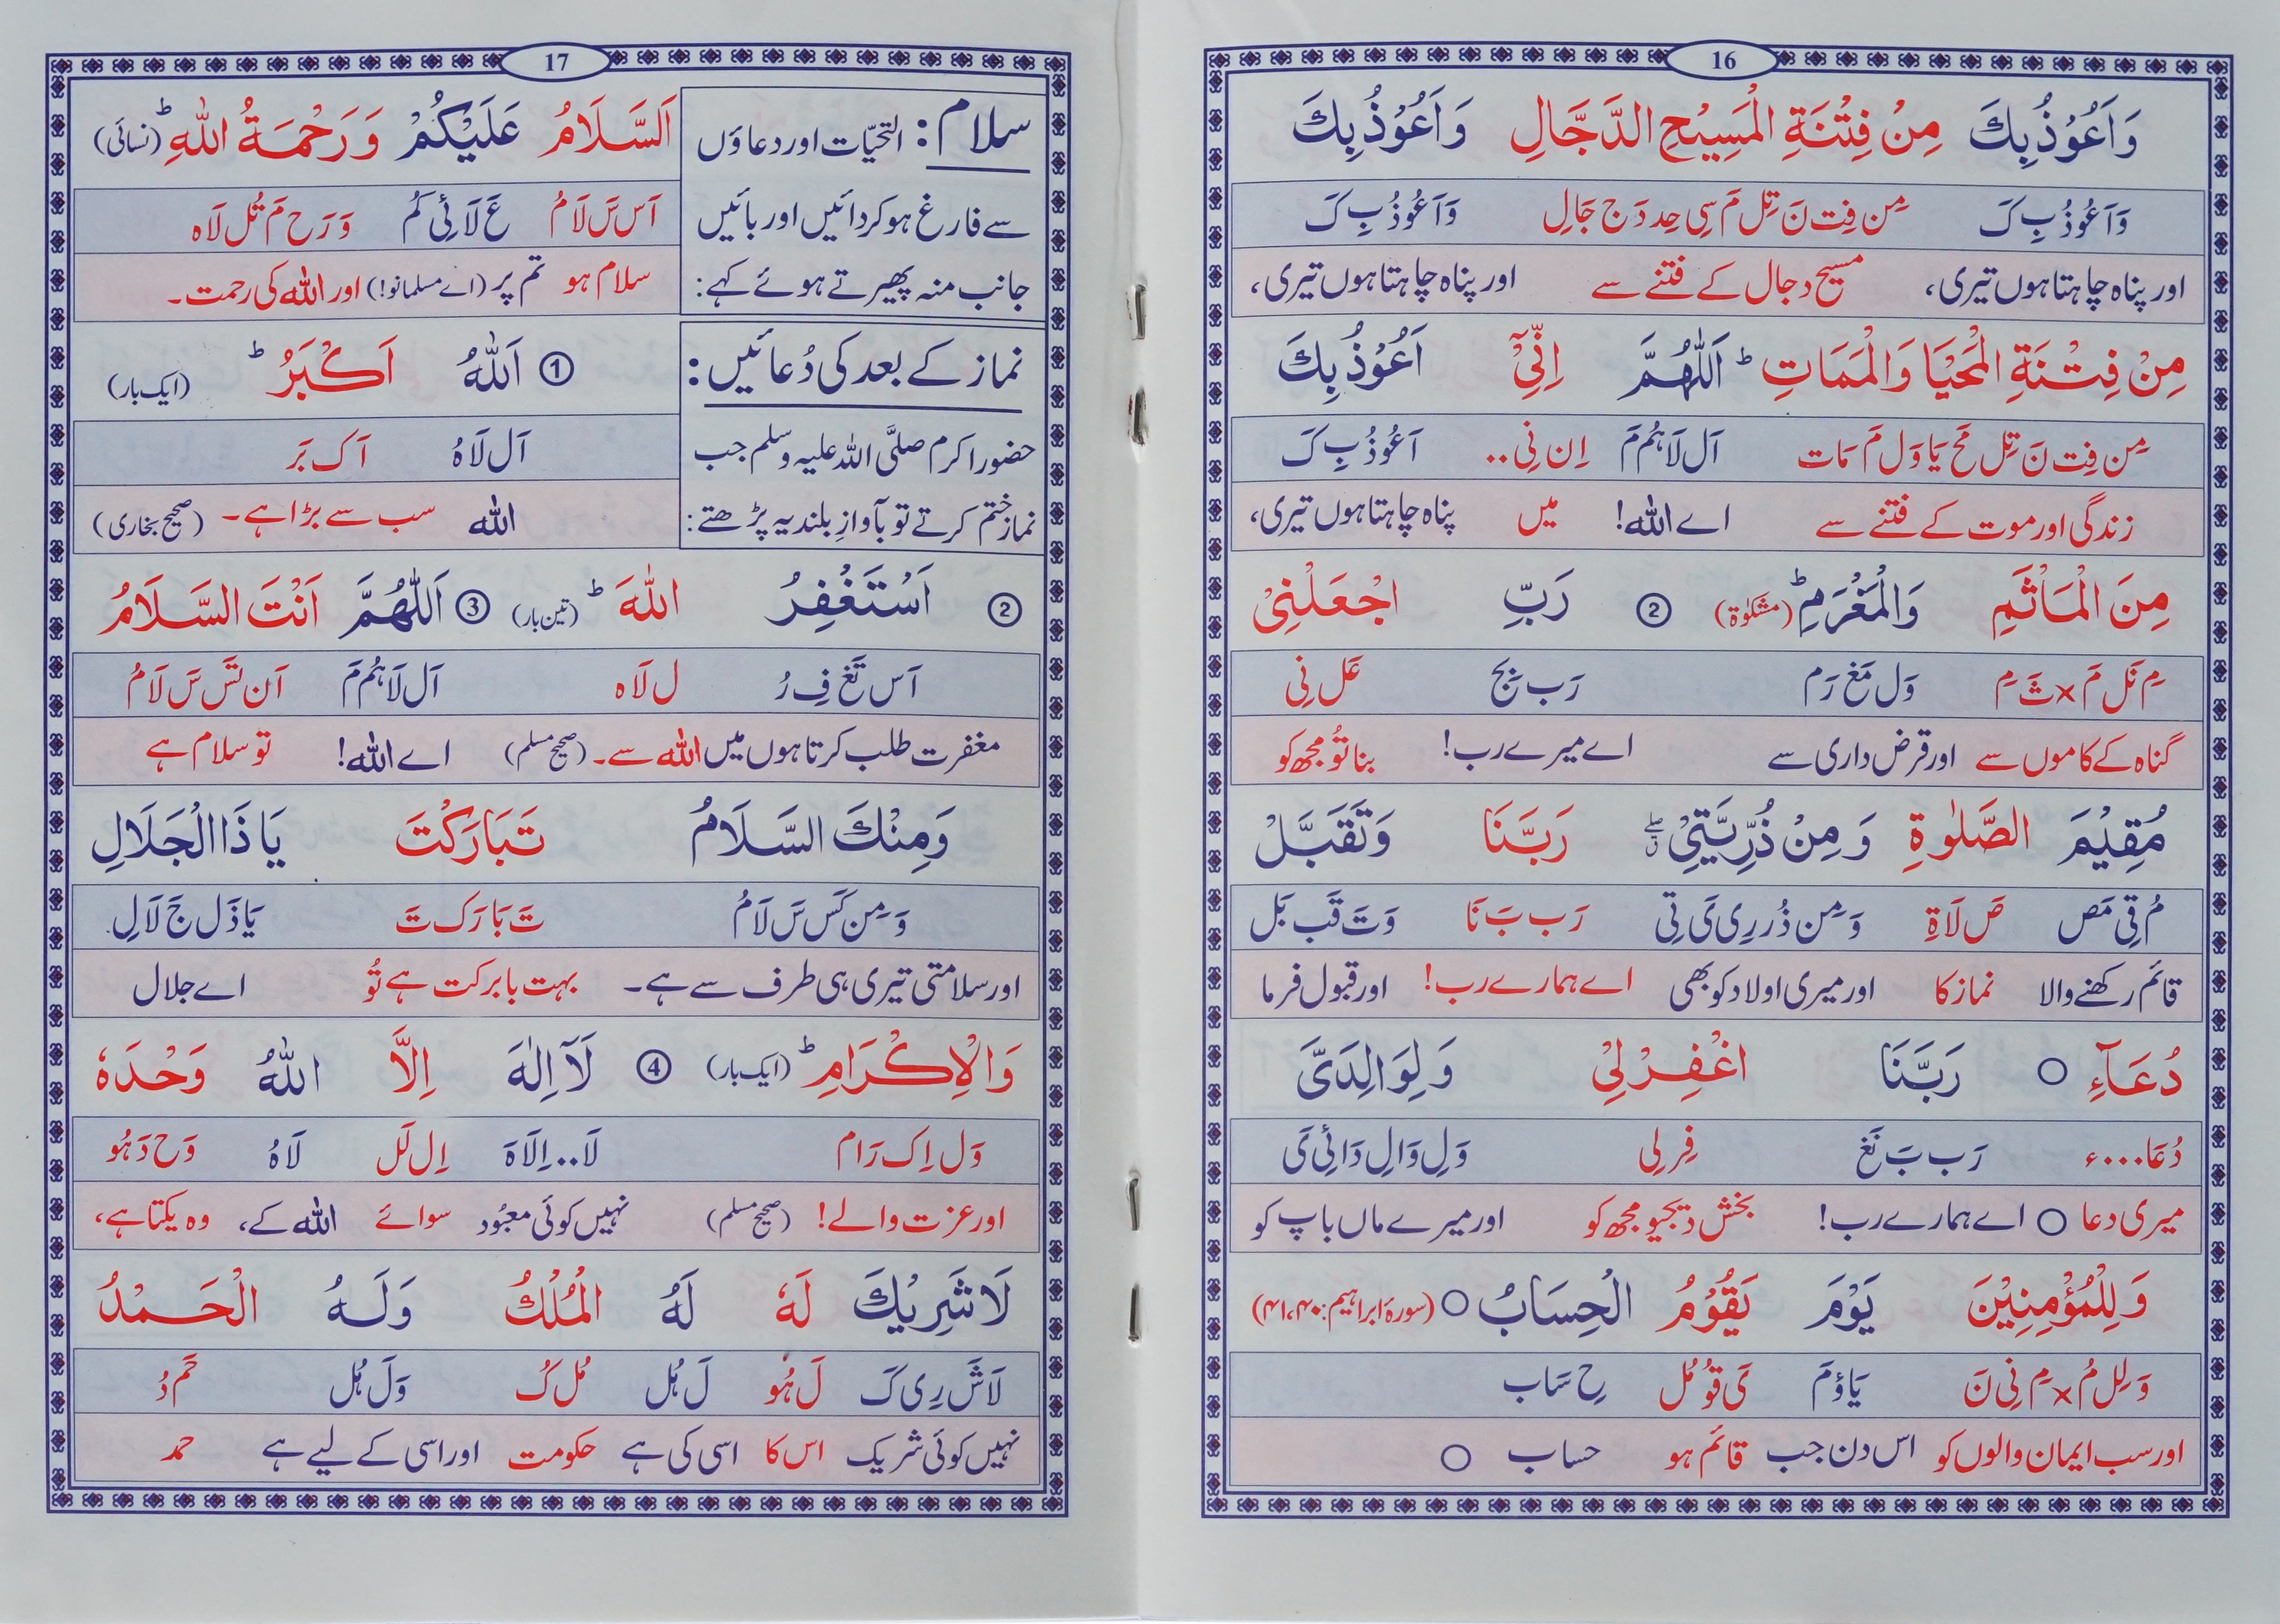 16
وَاَعُوْذُ بِكَ مِنْ فِتْنَةِ الْمَسِيْحِ الدَّجَّالِ وَاَعُوْذُ بِكَ
وَاَعُوْذُ بِ كَ مِن فِت نَ تِل مَ سِی حِد دَ ج جَالِ وَاَعُوْذُ بِ كَ
اور پناہ چاہتا ہوں تیری، مسیح دجال کے فتنے سے اور پناہ چاہتا ہوں تیری،
مِنْ فِتْنَةِ الْمَحْيَا وَالْمَمَاتِ ؕ اَللّٰهُمَّ اِنِّيْٓ اَعُوْذُ بِكَ
مِن فِت نَ تِل مَح یَا وَل مَ مَات اَل لَا هُم مَ اِن نِی.. اَعُوْذُ بِ كَ
زندگی اور موت کے فتنے سے اے اللہ! میں پناہ چاہتا ہوں تیری،
مِنَ الْمَاْثَمِ وَالْمَغْرَمِ ؕ (مشکوٰۃ) ② رَبِّ اجْعَلْنِيْ
مِ نَل مَ × ثَ مِ وَل مَغ رَم رَب بِج عَل نِی
گناہ کے کاموں سے اور قرض داری سے اے میرے رب! بنا تُو مجھ کو
مُقِيْمَ الصَّلٰوةِ وَ مِنْ ذُرِّيَّتِيْ رَبَّنَا وَتَقَبَّلْ
مُ قِی مَص صَ لَاةِ وَ مِن ذُر رِی یَ تِی رَب بَ نَا وَ تَ قَب بَل
قائم رکھنے والا نماز کا اور میری اولاد کو بھی اے ہمارے رب! اور قبول فرما
دُعَآءِ ○ رَبَّنَا اغْفِرْ لِيْ وَ لِوَالِدَيَّ
دُعَا....ء رَب بَ نَغ فِر لِی وَ لِ وَالِ دَائِ یَ
میری دعا ○ اے ہمارے رب! بخش دیجیو مجھ کو اور میرے ماں باپ کو
وَ لِلْمُؤْمِنِيْنَ يَوْمَ يَقُوْمُ الْحِسَابُ ○ (سورۃ ابراہیم: ۴۰،۴۱)
وَ لِل مُ × مِ نِی نَ یَاؤمَ یَ قُوْ مُل حِ سَاب
اور سب ایمان والوں کو اس دن جب قائم ہو حساب ○
17
سلام: التحیّات اور دعاؤں
سے فارغ ہو کر دائیں اور بائیں
جانب منہ پھیرتے ہوئے کہے:
اَلسَّلَامُ عَلَيْكُمْ وَ رَحْمَةُ اللّٰهِ ؕ (نسائی)
اَس سَ لَامُ عَ لَائِ كُم وَ رَح مَ تُل لَاه
سلام ہو تم پر (اے مسلمانو!) اور اللہ کی رحمت۔
نماز کے بعد کی دُعائیں:
حضور اکرم صلَّی اللہ علیہ وسلم جب
نماز ختم کرتے تو بآوازِ بلند یہ پڑھتے:
① اَللّٰهُ اَكْبَرُ ؕ (ایک بار)
اَل لَاهُ اَك بَر
اللہ سب سے بڑا ہے۔ (صحیح بخاری)
② اَسْتَغْفِرُ اللّٰهَ ؕ (تین بار) ③ اَللّٰهُمَّ اَنْتَ السَّلَامُ
اَس تَغ فِ رُ ل لَاه اَل لَا هُم مَ اَن تَس سَ لَامُ
مغفرت طلب کرتا ہوں میں اللہ سے۔ (صحیح مسلم) اے اللہ! تو سلام ہے
وَمِنْكَ السَّلَامُ تَبَارَكْتَ يَا ذَا الْجَلَالِ
وَ مِن كَس سَ لَامُ تَ بَا رَك تَ یَا ذَل جَ لَالِ
اور سلامتی تیری ہی طرف سے ہے۔ بہت بابرکت ہے تُو اے جلال
وَالْاِكْرَامِ ؕ (ایک بار) ④ لَآ اِلٰهَ اِلَّا اللّٰهُ وَحْدَهٗ
وَل اِك رَام لَا.. اِلَاهَ اِل لَل لَاهُ وَح دَ هُو
اور عزت والے! (صحیح مسلم) نہیں کوئی معبُود سوائے اللہ کے، وہ یکتا ہے،
لَا شَرِيْكَ لَهٗ لَهُ الْمُلْكُ وَلَهُ الْحَمْدُ
لَا شَ رِی كَ لَ هُو لَ هُل مُل كُ وَ لَ هُل حَم دُ
نہیں کوئی شریک اس کا اسی کی ہے حکومت اور اسی کے لیے ہے حمد